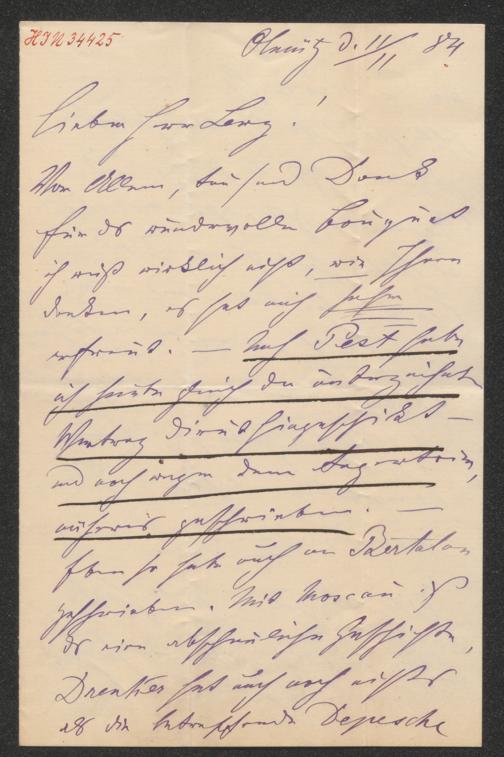 HIN 34425
Olmütz d. 11/11 84
Lieber Herr Berg!
Vor Allem, tausend Dank
für das wundervolle Bouquet
ich weiß wirklich nicht, wie Ihnen
danken, es hat mich sehr
erfreut. — Nach Pest habe
ich heute gleich den unterzeichneten
Vertrag direct hingeschickt —
und auch wegen dem
geschrieben. —
Eben so habe auch an Bertalan
geschrieben. Mit Moscau ist
das eine abscheuliche Geschichte,
hat auch noch nichts
als die betreffende Depesche